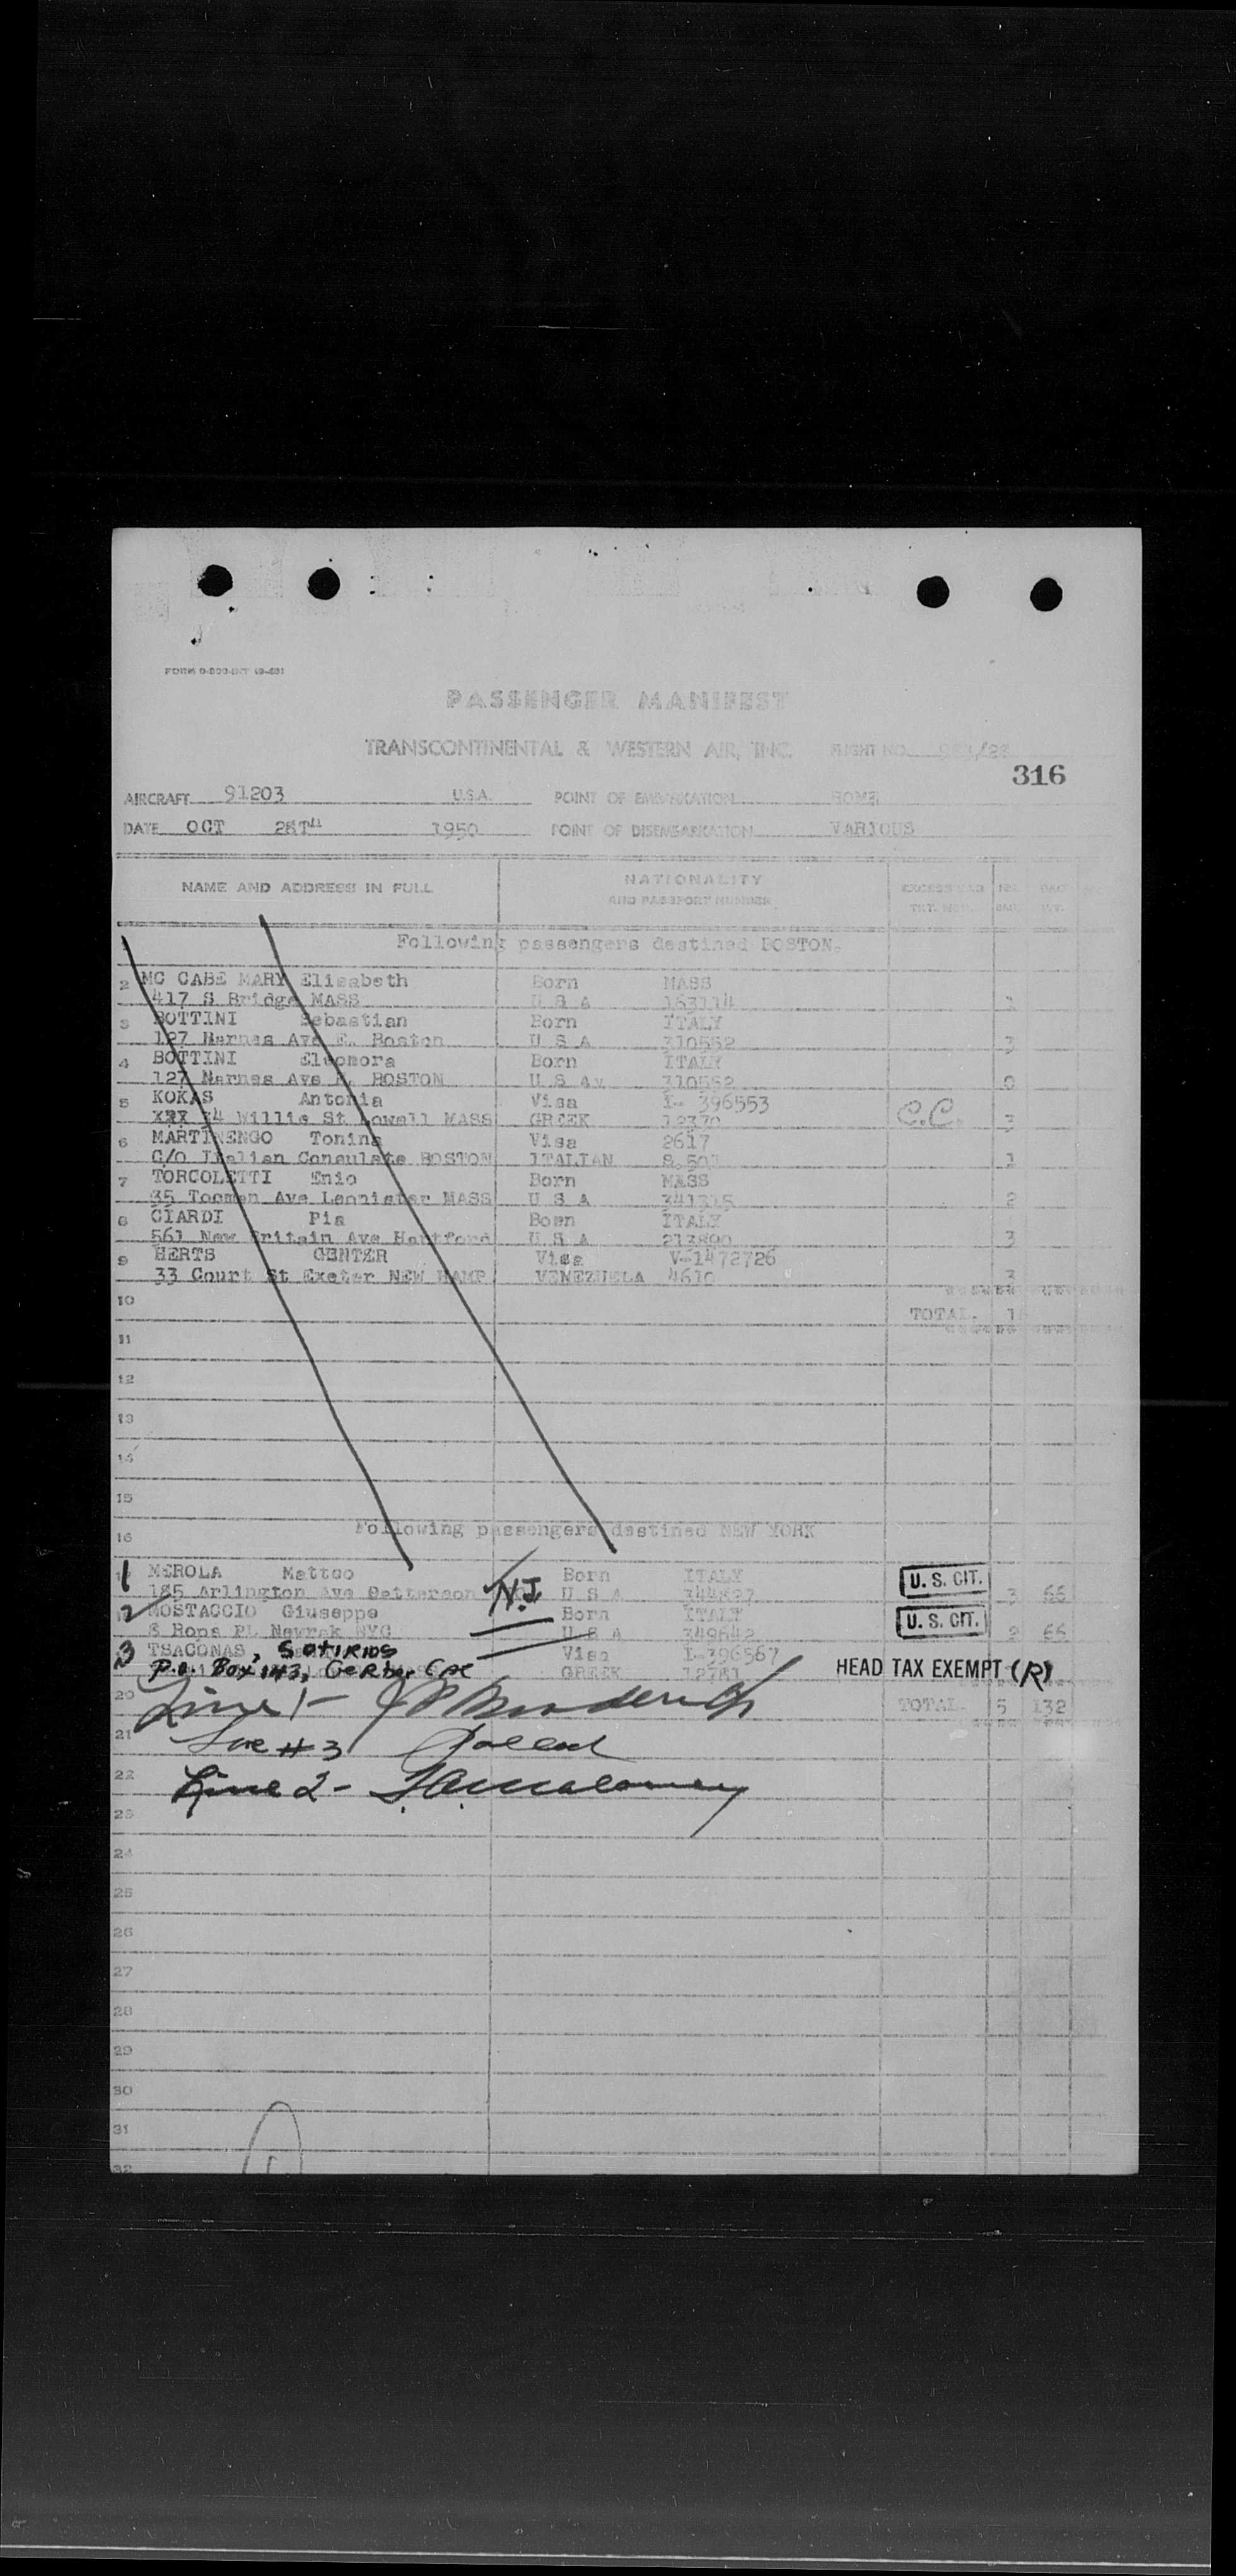 PASSENGER MANIFEST
TRANSCONTINENTAL & WESTERN AIR, INC. FLIGHT NO.
316
AIRCRAFT 91203 U.S.A. POINT OF EMBARKATION ROME
DATE OCT 28TH 1950 POINT OF DISEMBARKATION VARIOUS
NAME AND ADDRESS IN FULL NATIONALITY AND PASSPORT NUMBER
Following passengers destined BOSTON.
2 MC CABE MARY Elisabeth Born MASS
417 S Bridge MASS U S A 163114
3 BOTTINI Sebastian Born ITALY
127 Marnes Ave E. Boston U S A 310552 3
4 BOTTINI Eleonora Born ITALY
BOSTON U S A 310552 0
5 KOKAS Antonia Visa I- 396553
XXX 74 Willie St Lowell MASS GREEK 12370 C.C. 3
6 MARTINENGO Tonina Visa 2617
C/O Italian Consulate BOSTON ITALIAN 1
7 TORCOLETTI Enio Born MASS
35 Ave MASS U S A 341315 2
8 CIARDI Pia Born ITALY
561 New Britain Ave Hartford U S A 213890 3
9 HERTS GENTER Visa V-1472726
33 Court St Exeter NEW HAMP VENEZUELA 4610 3
10 TOTAL.
11
12
13
14
15
16 Following passengers destined NEW YORK
1 MEROLA Matteo Born ITALY U. S. CIT.
185 Arlington Ave N.J. U S A 344827 3 66
2 MOSTACCIO Giuseppe Born ITALY U. S. CIT.
NYC U S A 349642 2 66
3 TSACONAS, SOTIRIOS Visa I-396567
P.O. Box 143, Gerber, Cal GREEK 12761 HEAD TAX EXEMPT (R)
20 Line 1- TOTAL. 5 132
21 Line #3
22 Line 2-
23
24
25
26
27
28
29
30
31
32